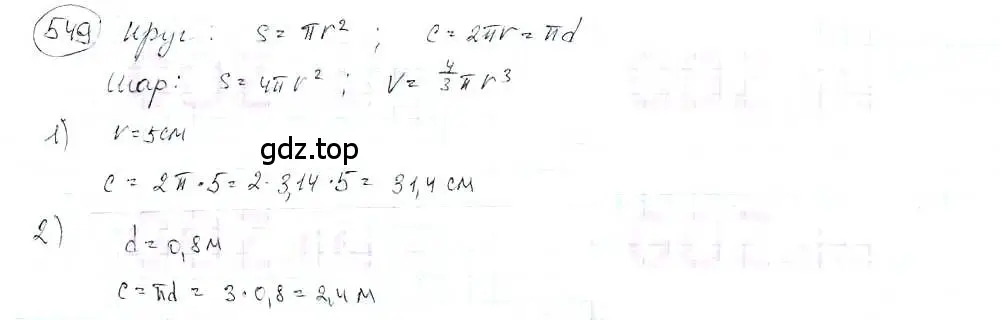 549 Круг: S = πr² ; C = 2πr = πd
Шар: S = 4πr² ; V = 4/3 πr³
1) r = 5 см
gdz.top
C = 2π · 5 = 2 · 3,14 · 5 = 31,4 см
2)
d = 0,8 м
C = πd = 3 · 0,8 = 2,4 м